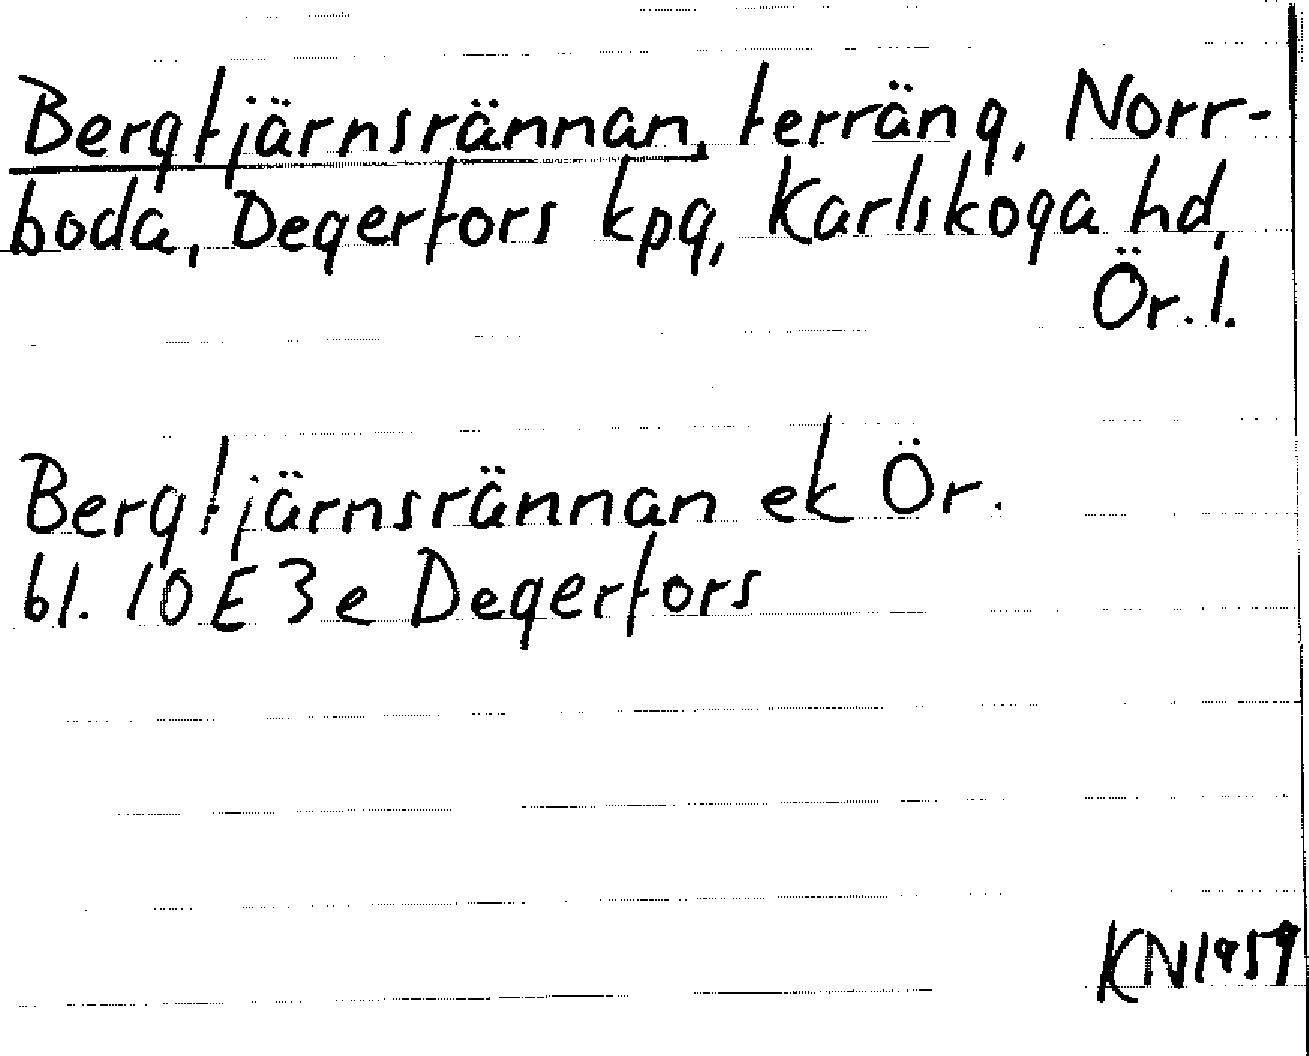 Bergtjärnsrännan, terräng, Norr-
boda, Degerfors kpg, Karlskoga hd,
Ör. l.
Bergtjärnsrännan ek Ör.
bl. 10 E 3 e Degerfors
KN 1959